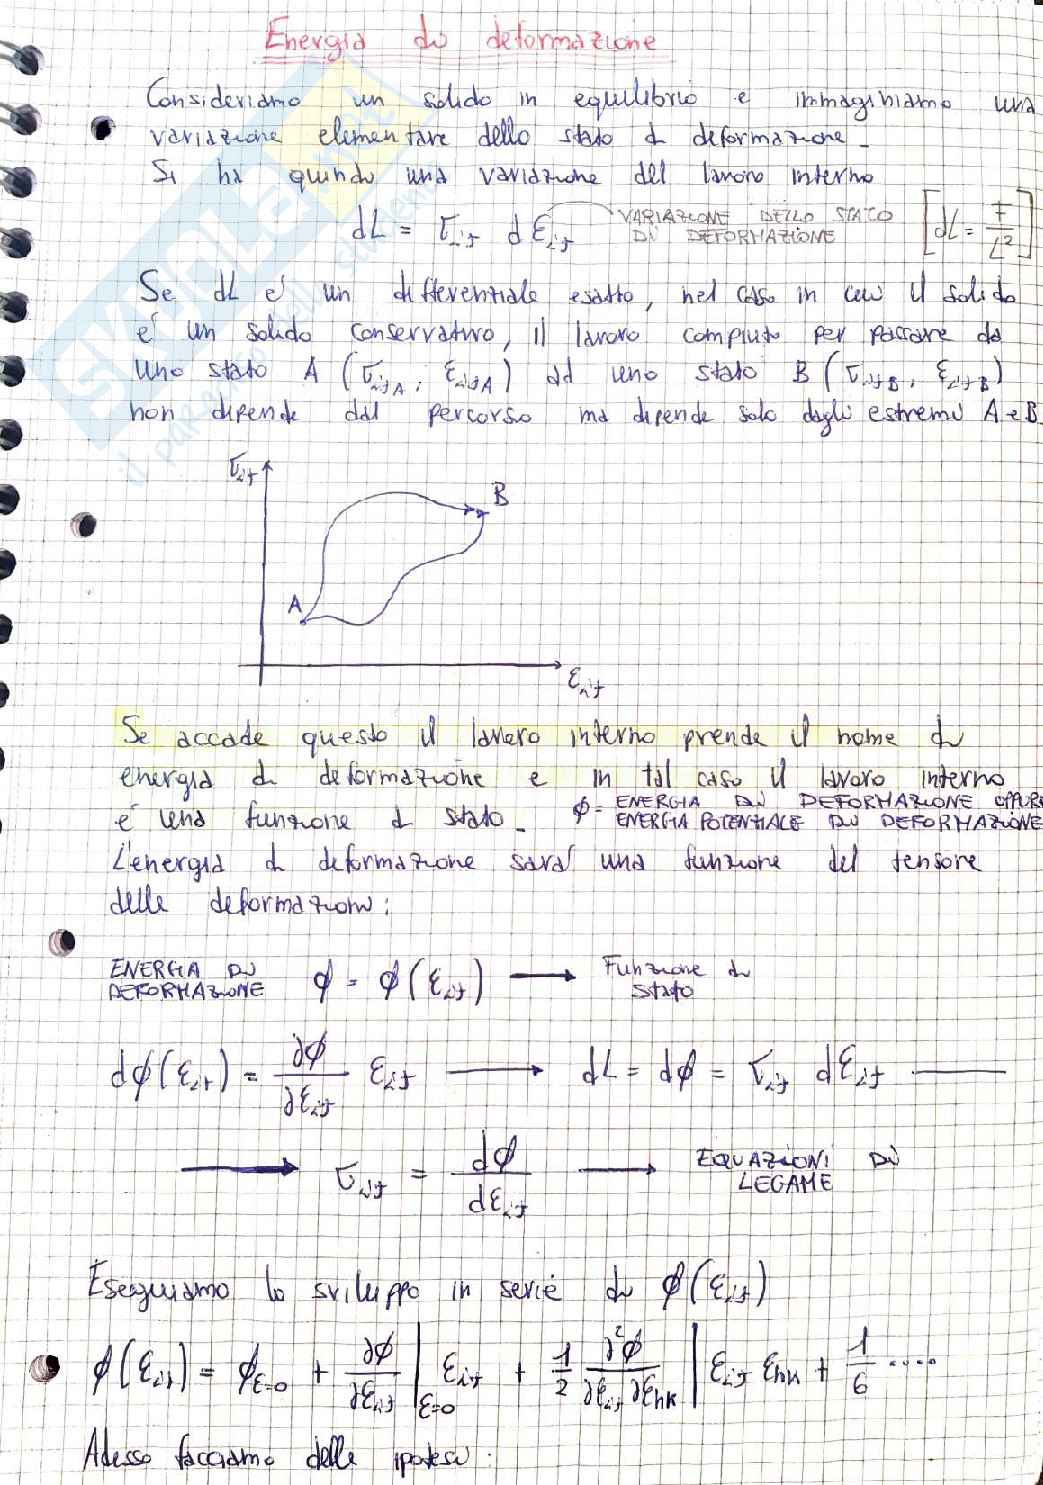 Energia di deformazione
Consideriamo un solido in equilibrio e immaginiamo una
variazione elementare dello stato di deformazione.
Si ha quindi una variazione del lavoro interno
dL = σij dεij VARIAZIONE DELLO STATO DI DEFORMAZIONE [dL = F/L²]
Se dL é un differenziale esatto, nel caso in cui il solido
é un solido conservativo, il lavoro compiuto per passare da
uno stato A (σijA; εijA) ad uno stato B (σijB, εijB)
non dipende dal percorso ma dipende solo dagli estremi A e B.
σij
B
A
εij
Se accade questo il lavoro interno prende il nome di
energia di deformazione e in tal caso il lavoro interno
é una funzione di stato. ϕ = ENERGIA DI DEFORMAZIONE OPPURE
ENERGIA POTENZIALE DI DEFORMAZIONE
L'energia di deformazione sará una funzione del tensore
delle deformazioni:
ENERGIA DI DEFORMAZIONE ϕ = ϕ(εij) → Funzione di stato
dϕ(εij) = ∂ϕ/∂εij εij → dL = dϕ = σij dεij
→ σij = dϕ/dεij → EQUAZIONI DI LEGAME
Eseguiamo lo sviluppo in serie di ϕ(εij)
ϕ(εij) = ϕε=0 + ∂ϕ/∂εij |ε=0 εij + 1/2 ∂²ϕ/∂εij ∂εhk | εij εhk + 1/6 ....
Adesso facciamo delle ipotesi: